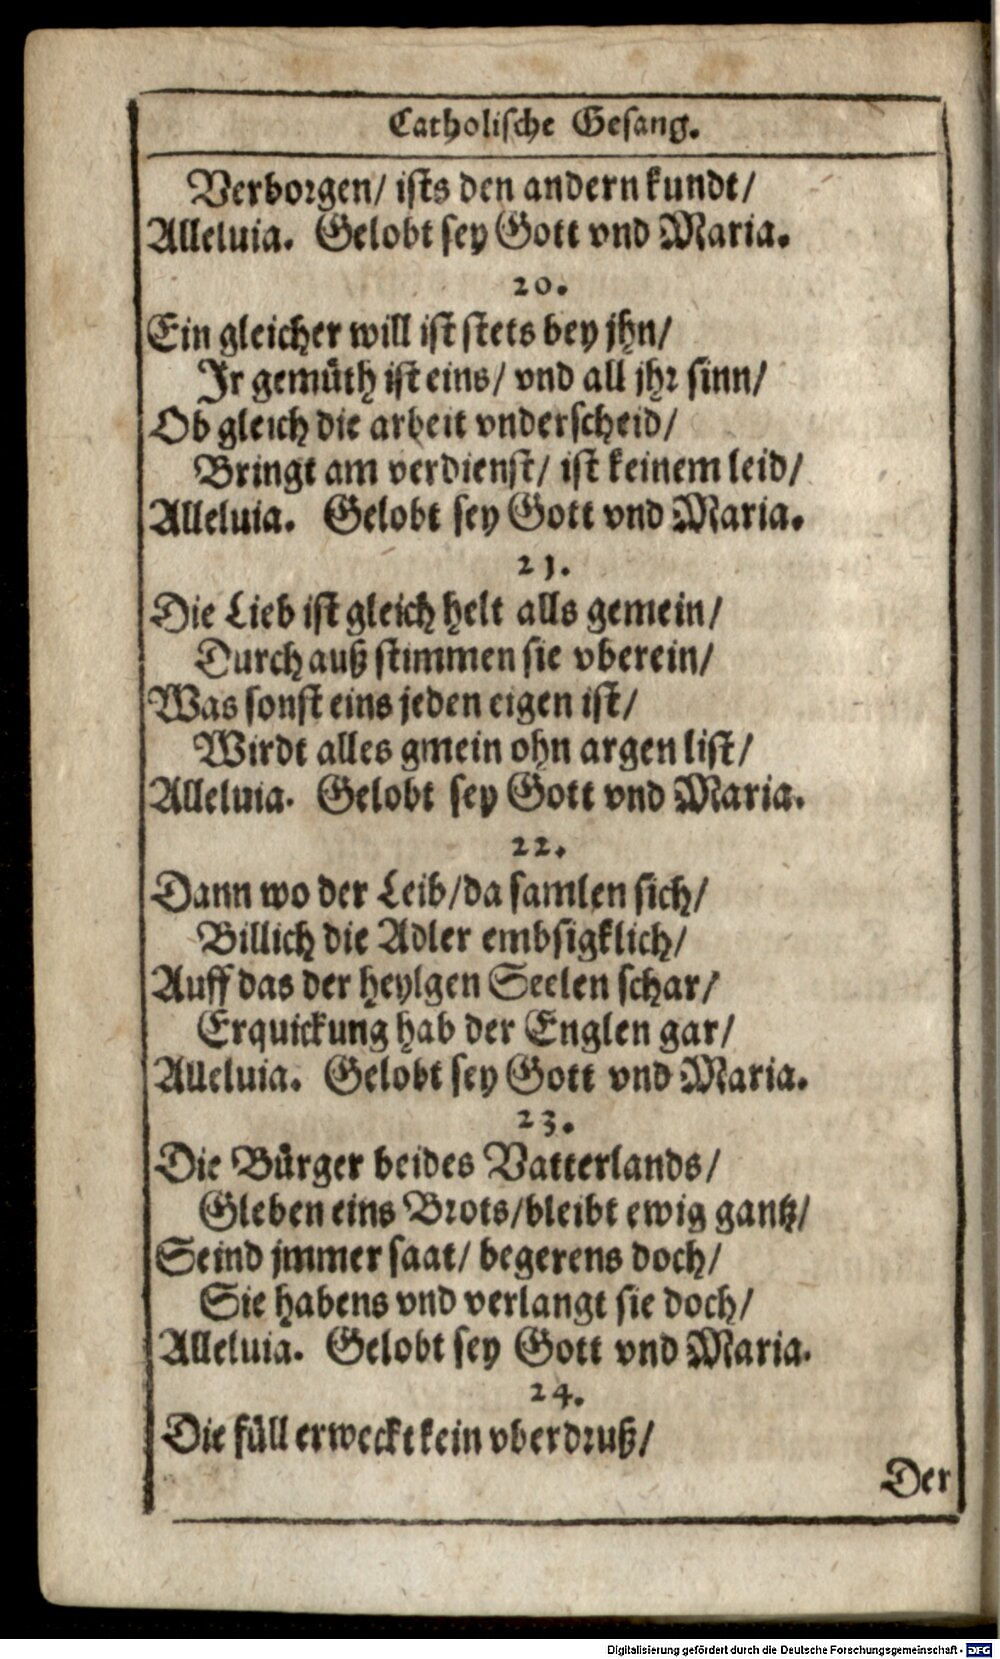 Catholische Gesang.
Verborgen/ ists den andern kundt/
Alleluia. Gelobt sey Gott vnd Maria.
20.
Ein gleicher will ist stets bey jhn/
Ir gemüth ist eins/ vnd all jhr sinn/
Ob gleich die arbeit vnderscheid/
Bringt am verdienst/ ist keinem leid/
Alleluia. Gelobt sey Gott vnd Maria.
21.
Die Lieb ist gleich helt alls gemein/
Durch auß stimmen sie vberein/
Was sonst eins jeden eigen ist/
Wirdt alles gmein ohn argen list/
Alleluia. Gelobt sey Gott vnd Maria.
22.
Dann wo der Leib/da samlen sich/
Billich die Adler embsigklich/
Auff das der heylgen Seelen schar/
Erquickung hab der Englen gar/
Alleluia. Gelobt sey Gott vnd Maria.
23.
Die Bürger beides Vatterlands/
Gleben eins Brots/bleibt ewig gantz/
Seind jmmer saat/ begerens doch/
Sie habens vnd verlangt sie doch/
Alleluia. Gelobt sey Gott vnd Maria.
24.
Die füll erweckt kein vberdruß/
Der
Digitalisierung gefördert durch die Deutsche Forschungsgemeinschaft - DFG